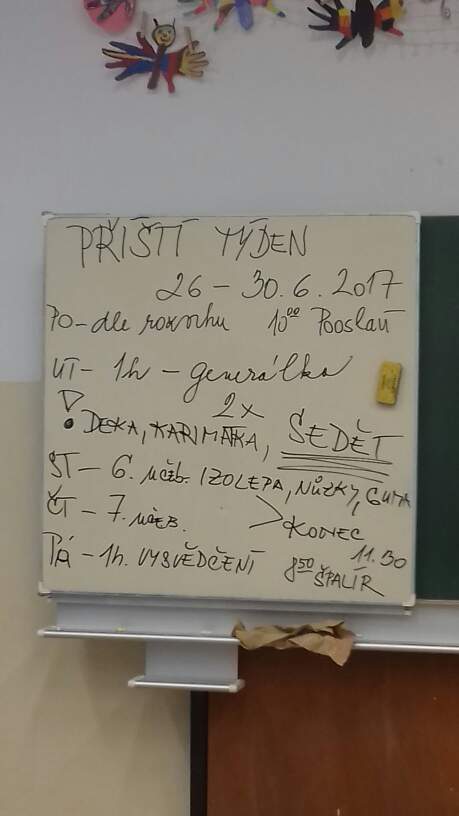 PŘÍŠTÍ TÝDEN
26 – 30. 6. 2017
PO – dle rozvrhu 10⁰⁰
ÚT – 1h – generálka
2x
! DEKA, KARIMATKA, SEDĚT
ST – 6. učeb. IZOLEPA, NŮŽKY, GUMA
ČT – 7. učeb. > KONEC
11.30
PÁ – 1h. VYSVĚDČENÍ 8⁵⁰ ŠPALÍR